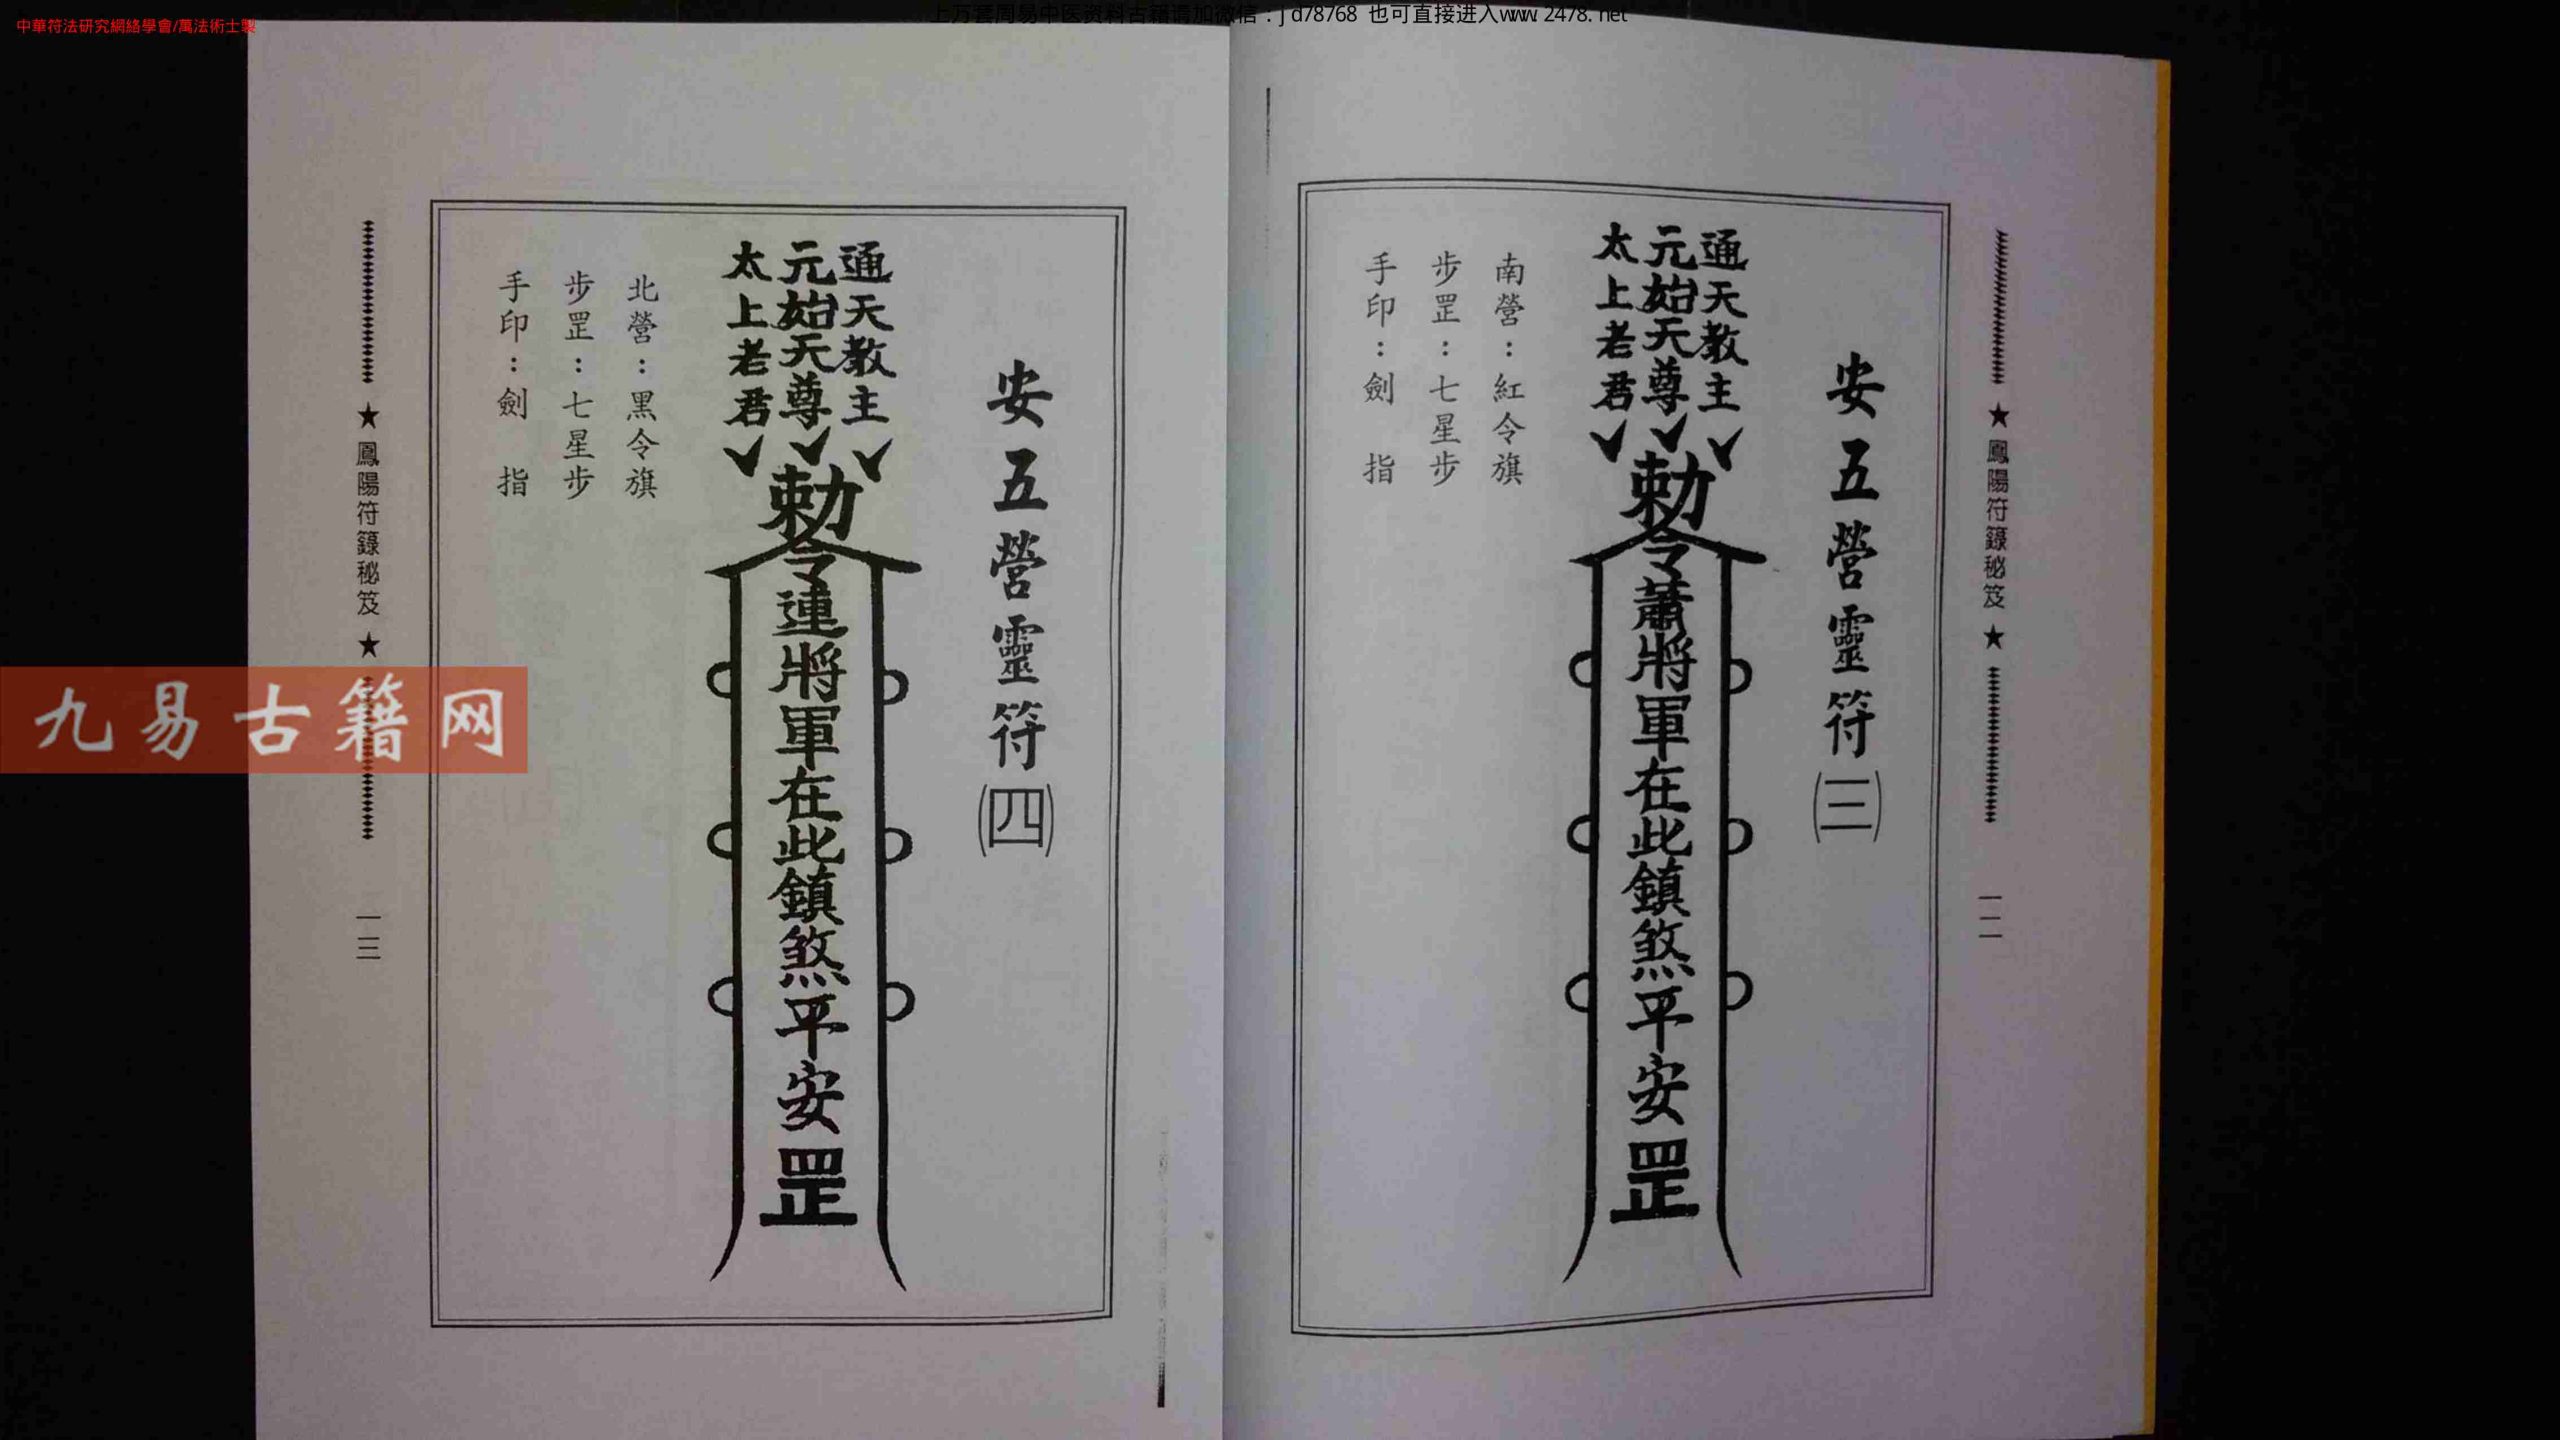 中華符法研究網絡學會/萬法術士製
上万套周易中医资料古籍请加微信：jd78768 也可直接进入www.2478.net
★鳳陽符籙秘笈★
一一二
安五營靈符㈢
通天教主
元始天尊
太上老君
勅令蕭將軍在此鎮煞平安罡
南營：紅令旗
步罡：七星步
手印：劍 指
安五營靈符㈣
通天教主
元始天尊
太上老君
勅令連將軍在此鎮煞平安罡
北營：黑令旗
步罡：七星步
手印：劍 指
★鳳陽符籙秘笈★
一一三
九易古籍网